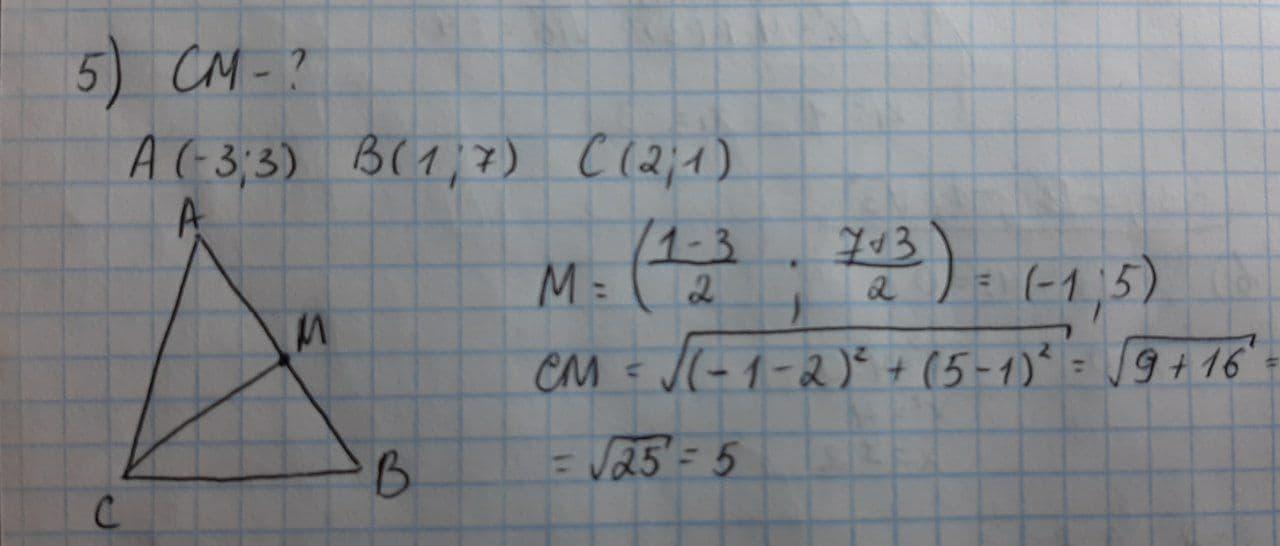 5) CM - ?
A(-3;3) B(1;7) C(2;1)
A
M
C
B
M = ((1-3)/2 ; (7+3)/2) = (-1;5)
CM = √((-1-2)² + (5-1)²) = √(9+16) =
= √25 = 5